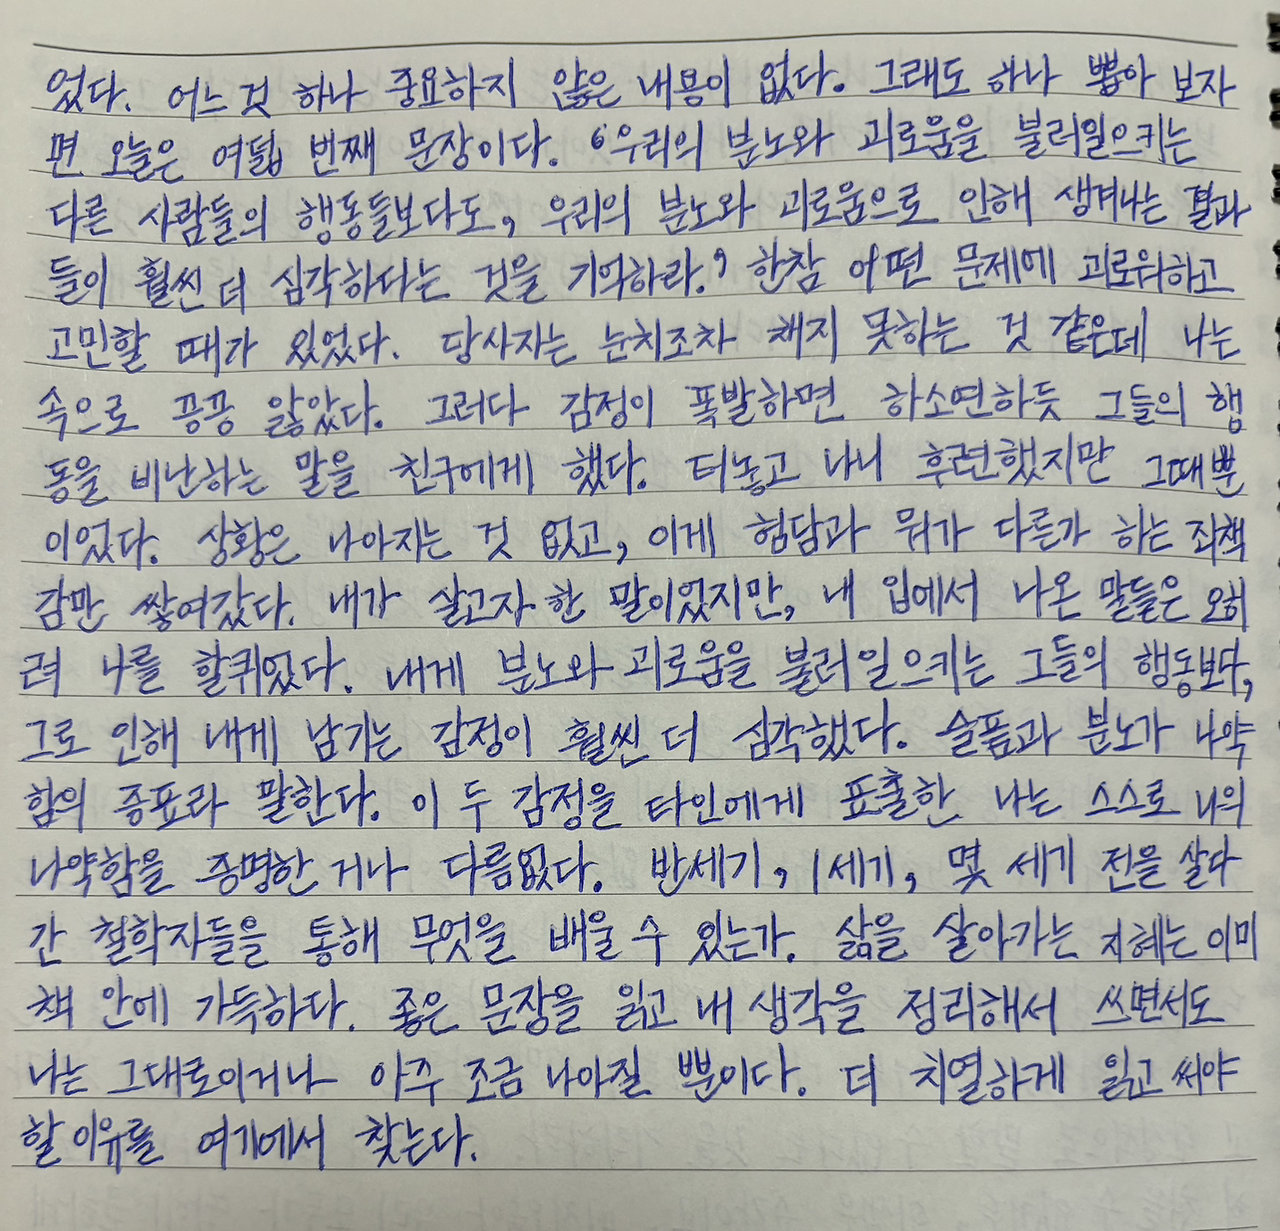 었다. 어느 것 하나 중요하지 않은 내용이 없다. 그래도 하나 뽑아 보자
면 오늘은 여덟 번째 문장이다. ‘우리의 분노와 괴로움을 불러일으키는
다른 사람들의 행동들보다도, 우리의 분노와 괴로움으로 인해 생겨나는 결과
들이 훨씬 더 심각하다는 것을 기억하라.’ 한참 어떤 문제에 괴로워하고
고민할 때가 있었다. 당사자는 눈치조차 채지 못하는 것 같은데 나는
속으로 끙끙 앓았다. 그러다 감정이 폭발하면 하소연하듯 그들의 행
동을 비난하는 말을 친구에게 했다. 터놓고 나니 후련했지만 그때뿐
이었다. 상황은 나아지는 것 없고, 이게 험담과 뭐가 다른가 하는 죄책
감만 쌓여갔다. 내가 살고자 한 말이었지만, 내 입에서 나온 말들은 오히
려 나를 할퀴었다. 내게 분노와 괴로움을 불러일으키는 그들의 행동보다,
그로 인해 내게 남기는 감정이 훨씬 더 심각했다. 슬픔과 분노가 나약
함의 증표라 말한다. 이 두 감정을 타인에게 표출한 나는 스스로 나의
나약함을 증명한 거나 다름없다. 반세기, 1세기, 몇 세기 전을 살다
간 철학자들을 통해 무엇을 배울 수 있는가. 삶을 살아가는 지혜는 이미
책 안에 가득하다. 좋은 문장을 읽고 내 생각을 정리해서 쓰면서도
나는 그대로이거나 아주 조금 나아질 뿐이다. 더 치열하게 읽고 써야
할 이유를 여기에서 찾는다.